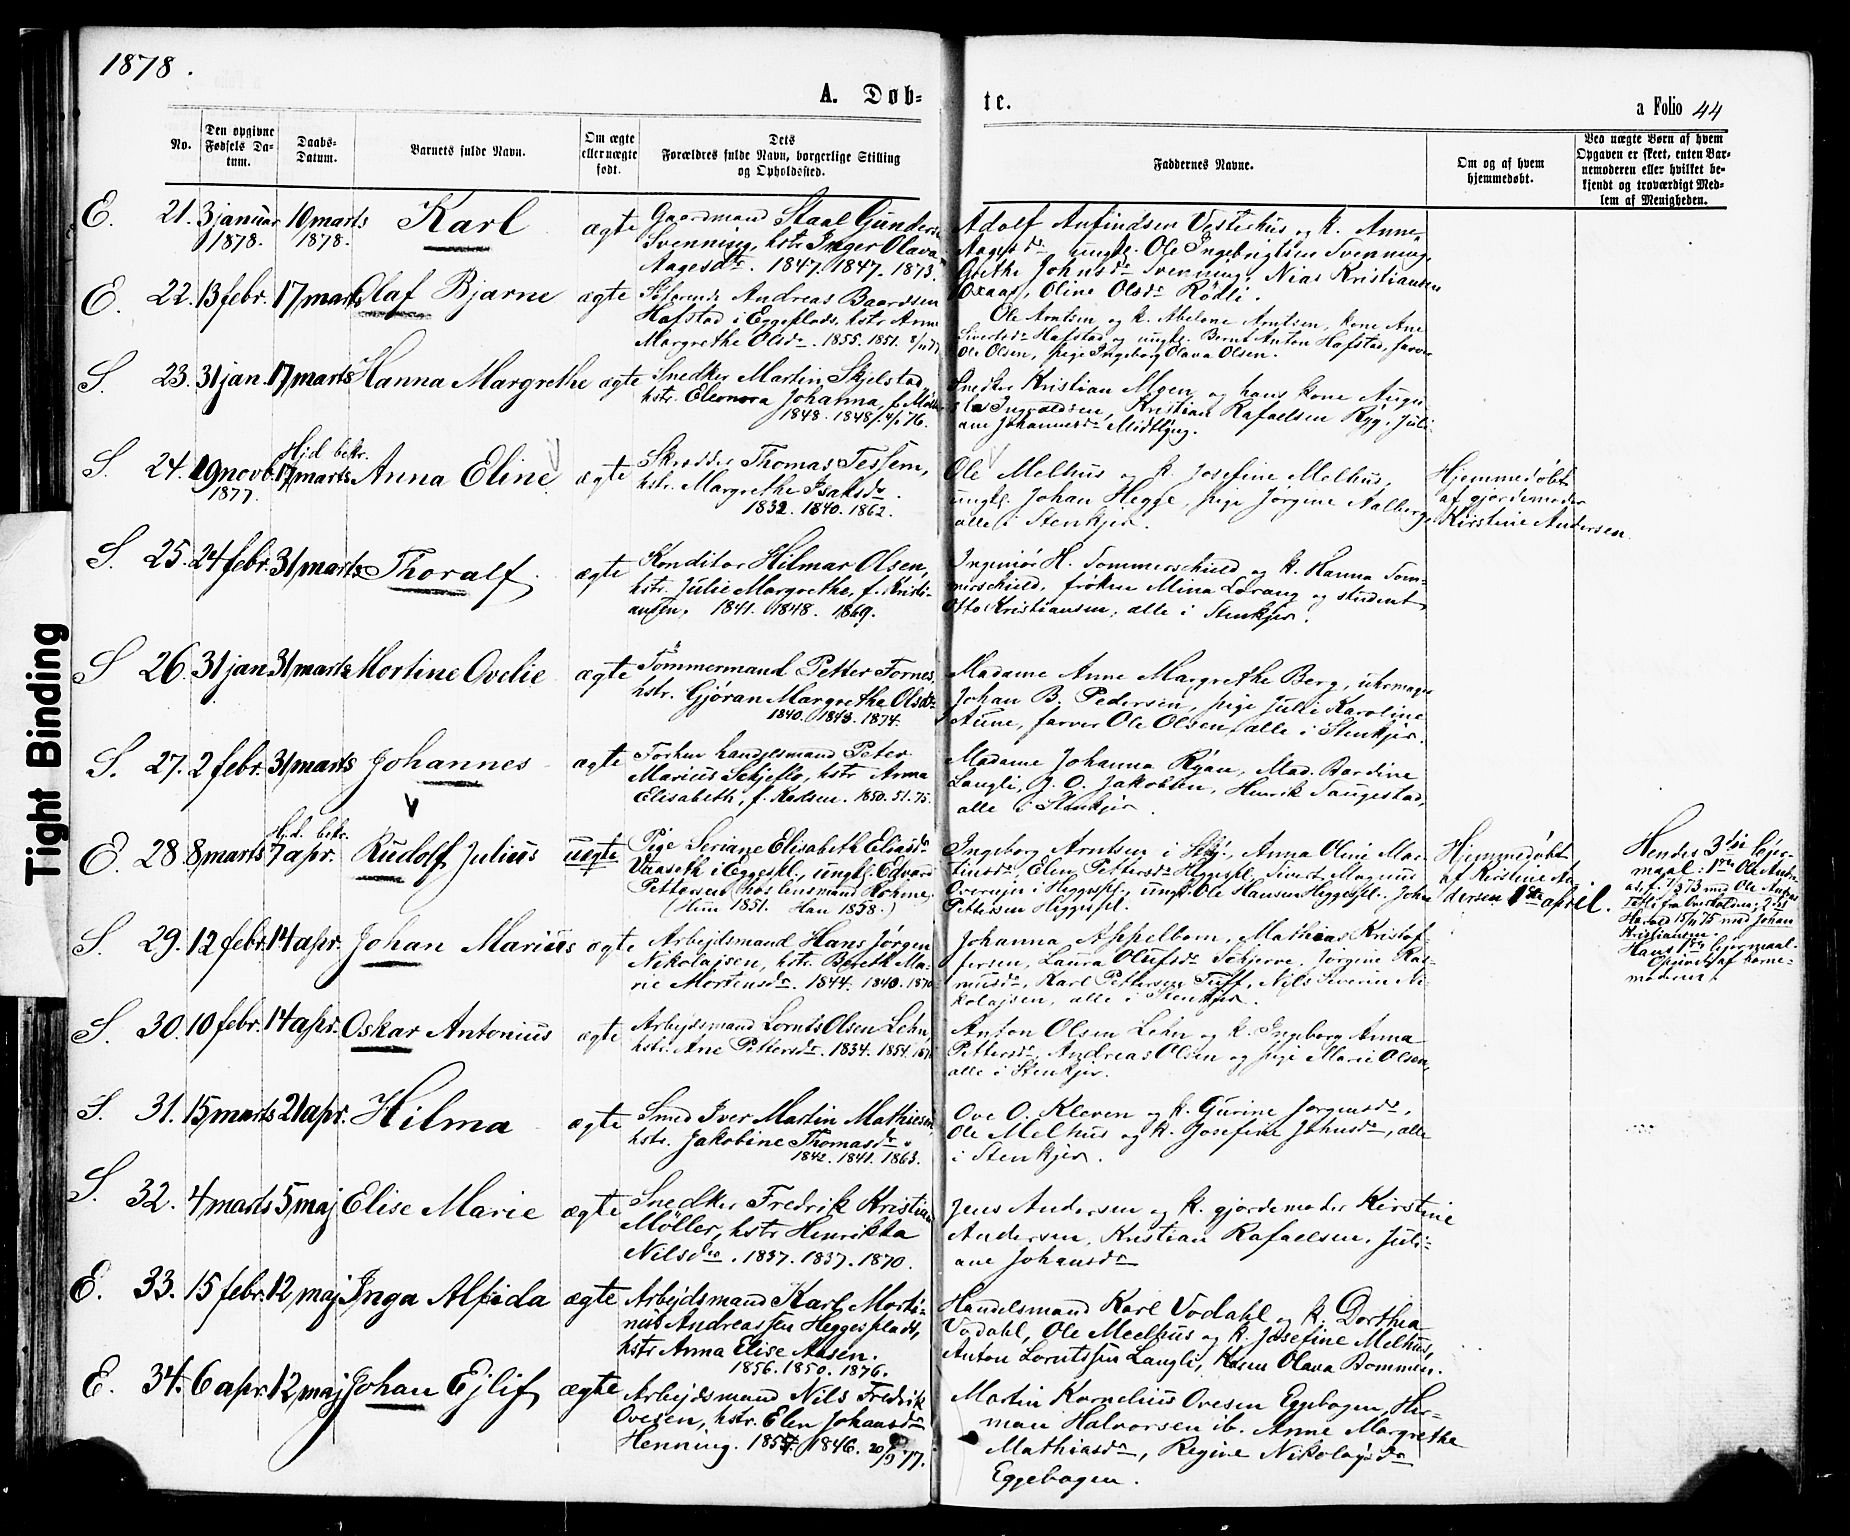 1878.
A. Døb-
te.
a Folio 44
No.
Den opgivne
Fødsels Da-
tum.
Daabs-
Datum.
Barnets fulde Navn.
Om ægte
eller uægte
født.
Dets
Forældres fulde Navn, borgerlige Stilling
og Opholdssted.
Faddernes Navne.
Om og af hvem
hjemmedøbt.
Ved uægte Børn af hvem
Opgaven er skeet, enten Bar-
nemoderen eller hvilket be-
kjendt og troværdigt Med-
lem af Menigheden.
E. 21. 3 januar 10 marts Karl ægte
1878. 1878.
Gaardmand Staal Gunders
Svenning, hstr Inger Olava
Aagesdr. 1847. 1847. 1873.
Adolf Anfindsen Vesterhus og k. Anne
Aagesdr ungk. Ole Ingebrigtsen Svenning,
Grethe Johnsdr Svenning, Nias Kristiansen
Oxaas, Oline Olsdr Rödli.
E. 22. 13 febr. 17 marts Olaf Bjarne ægte
Andreas Baardsen
Hafstad i Eggeplads, hstr Anne
Margrethe Olsdr. 1855. 1851.
Ole Arntsen og k. Abelone Arntsen, kone Ane
Sivertsdr Hafstad og ungk. Bernt Anton Hafstad, farver
Ole Olsen, pige Ingeborg Olava Olsen.
S. 23. 31 jan. 17 marts Hanna Margrethe ægte
Snedker Martin Skjelstad,
hstr. Eleonora Johanna, f. Möller
1848. 1848.
Snedker Kristian Moen og hans kone Augu
sta Ingvaldsen, Kristian Rafaelsen Ryg, Juli-
ane Johannesdr Midtlyng.
Hjd. bekr.
S. 24. 29 novb. 17 marts Anna Eline ægte
1877.
Skrædder Thomas Tessem,
hstr. Margrethe Isaksdr.
1832. 1840. 1862.
Ole Melhus og k. Josefine Melhus,
ungk. Johan Hegge, pige Jørgine Aalberg,
alle i Stenkjer.
Hjemmedøbt
af gjordemoder
Kirstine Andersen.
S. 25. 24 febr. 31 marts Thoralf ægte
Konditor Hilmar Olsen,
hstr. Julie Margrethe, f. Kristi-
ansen, 1841. 1848. 1869.
Ingeniør H. Sommerschield og k. Hanna Som-
merschield, frøken Mina Lorang og student
Otto Kristiansen, alle i Stenkjer.
S 26. 31 jan 31 marts Mortine Ovelie ægte
Tømmermand Petter Fornes,
hstr. Gjöran Margretha Olsdr
1840. 1843. 1874.
Madame Anne Margrethe Berg, uhrmager
Johan B. Pedersen, pige Juli Karoline
Aune, farver Ole Olsen, alle i Stenkjer.
S. 27. 2 febr. 31 marts Johannes ægte
Forhen handelsmand Peter
Marius Schjeflo, hstr Anna
Elisabeth, f. 1850. 51. 75.
Madame Johanna Ryan, Mad. Bardine
Langli, J. O. Jakobsen, Henrik Saugestad,
alle i Stenkjer.
Hjd. bekr.
E. 28. 8 marts 7 apr. Rudolf Julius uægte
Pige Seriane Elisabeth Eliasdr
Vaaseth i Eggeskl., ungk. Edvard
Pettersen hos lensmand Holme,
(Hun 1851. Han 1858.)
Ingeborg Arntsen i Anna Oline Mar-
tinsdr, Elen Pettersdr Heggespl. Sivert Magnus
Overrejn i Heggespl., ungk. Ole Hansen Heggespl. John
Pettersen Heggespl.
Hjemmedøbt
af Kirstine An
dersen 1ste april.
Hendes 3die lejer-
maal: 1ste Ole
1873 med Ole
fra 2det
Harald 1875 med Johan
Kristiansen.
Hans 1ste lejermaal.
Opgivet af barne-
moderen
S. 29. 12 febr. 14 apr. Johan Marius ægte
Arbejdsmand Hans Jørgen
Nikolajsen, hstr. Bereth Ma-
rie Mortensdr. 1844. 1840. 1870
Johanna Appelbom, Mathias Kristof-
fersen, Laura Olufsdr Schjerve, Jørgine Ras-
musdr, Karl Pettersen Tuff, Nils Severin Ni-
kolajsen, alle i Stenkjer.
S. 30. 10 febr. 14 apr. Oskar Antonius ægte
Arbejdsmand Lornts Olsen Lehn,
hstr. Ane Pettersdr. 1834. 1854.
Anton Olsen Lehn og k. Ingeborg Anna
Pettersdr, Andreas Olsen og pige Marie Olsen,
alle i Stenkjer.
S. 31. 15 marts 21 apr. Hilma ægte
Smed Iver Martin Mathiesen,
hstr. Jakobine Thomasdr.
1842. 1841. 1863.
Ove O. Kleven og k. Gurine Jørgensdr,
Ole Melhus og k. Josefine Johnsdr, alle
i Stenkjer.
S. 32. 4 marts 5 maj Elise Marie ægte
Snedker Fredrik Kristian
Möller, hstr Henrikka
Nilsdr. 1837. 1837. 1870.
Jens Andersen og k. gjordemoder Kirstine
Andersen, Kristian Rafaelsen, Juli-
ane Johansdr
E. 33. 15 febr. 12 maj Inga Alfida ægte
Arbejdsmand Karl Marti-
nus Andreassen Heggesplads,
hstr Anna Elise Aasen.
1856. 1850. 1876.
Handelsmand Karl Vodahl og k. Dorthea
Vodahl, Ole Meelhus og k. Josefine Melhus,
Anton Lorntssen Langli, Karen Olava Bommen.
E. 34. 6 apr. 12 maj Johan Ejlif ægte
Arbejdsmand Nils Fredrik
Ovesen, hstr. Elen Johansdr
Henning. 1854. 1846. 20/9 77.
Martin Kornelius Ovesen Eggebogen, Her-
man Halvorsen ib. Anne Margrethe
Mathiasdr, Regine Nikolajsdr
Eggebogen.
Tight Binding